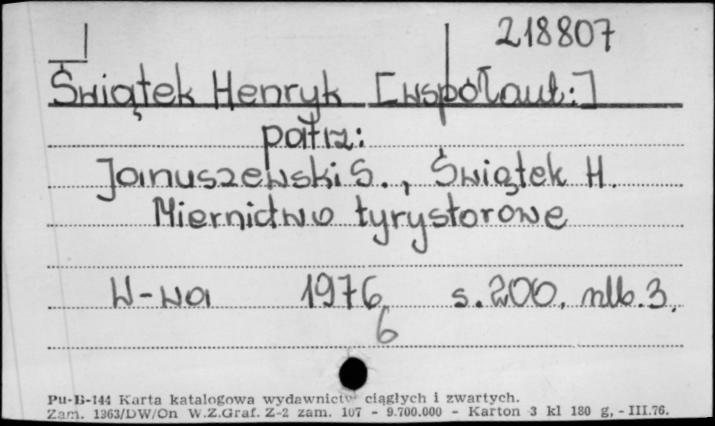 218807
Świątek Henryk [współaut:]
patrz:
Januszewski S., Świątek H.
Miernictwo tyrystorowe
W-wa 1976 s. 200, nlb. 3.
6
Pu-B-144 Karta katalogowa wydawnictw ciągłych i zwartych.
Zam. 1363/DW/On W.Z.Graf. Z-2 zam. 107 - 9.700.000 - Karton 3 kl 180 g, - III.76.